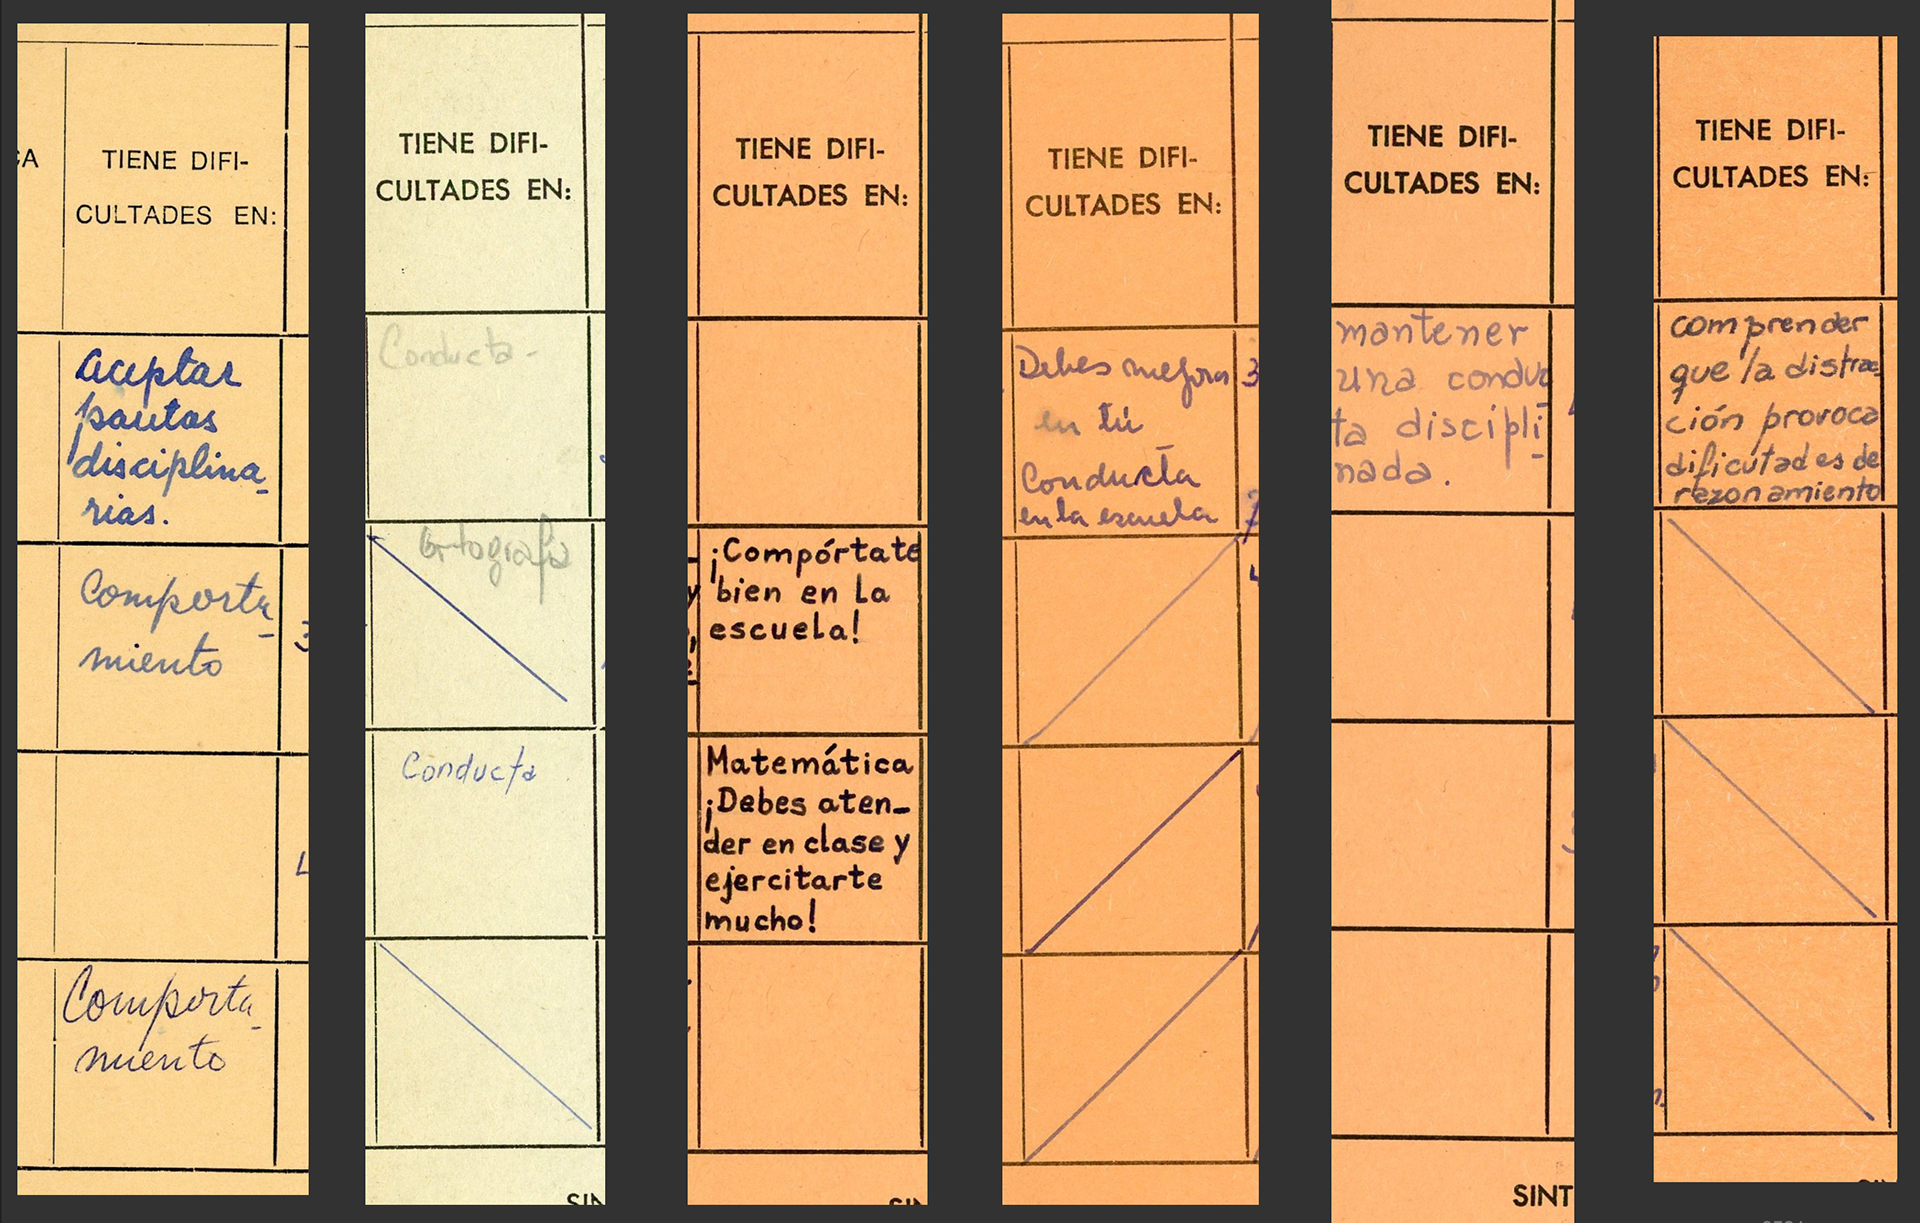 CA
TIENE DIFI-
CULTADES EN:
aceptar
pautas
disciplina-
rias.
Comporta-
miento
3
Comporta-
miento
TIENE DIFI-
CULTADES EN:
Conducta-
Ortografía
Conducta
TIENE DIFI-
CULTADES EN:
¡Compórtate
bien en la
escuela!
Matemática
¡Debes aten-
der en clase y
ejercitarte
mucho!
TIENE DIFI-
CULTADES EN:
Debes mejorar
en tú
Conducta
en la escuela
3
TIENE DIFI-
CULTADES EN:
mantener
una conduc
ta discipli-
nada.
SINT
TIENE DIFI-
CULTADES EN:
comprender
que la distrac-
ción provoca
dificutades de
razonamiento